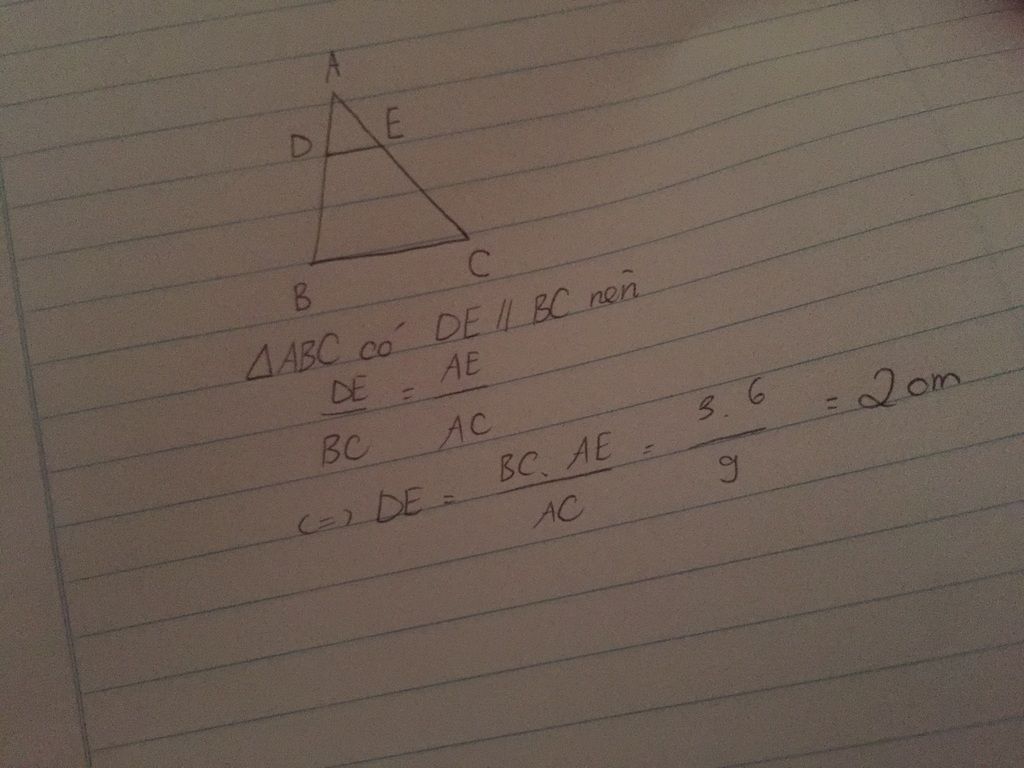 A
D E
B C
ΔABC có DE // BC nên
DE/BC = AE/AC
(=) DE = BC. AE/AC = 3. 6/9 = 2 cm